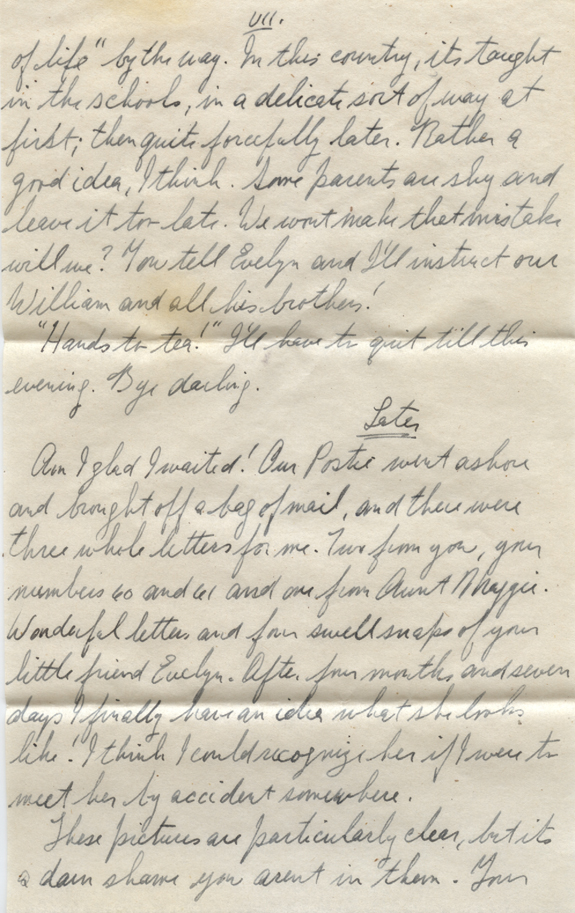 VII.
of life" by the way. In this country, its taught
in the schools, in a delicate sort of way at
first; then quite forcefully later. Rather a
good idea, I think. Some parents are shy and
leave it too late. We wont make that mistake
will we? You tell Evelyn and I'll instruct our
William and all his brothers!
"Hands to tea!" I'll have to quit till this
evening. Bye darling.
Later
Am I glad I waited! Our Postie went ashore
and brought off a bag of mail, and there were
three whole letters for me. Two from you, your
numbers 60 and 61 and one from Aunt Maggie.
Wonderful letters and four swell snaps of your
little friend Evelyn. After four months and seven
days I finally have an idea what she looks
like! I think I could recognize her if I were to
meet her by accident somewhere.
These pictures are particularly clear, but its
a darn shame you arent in them. Your